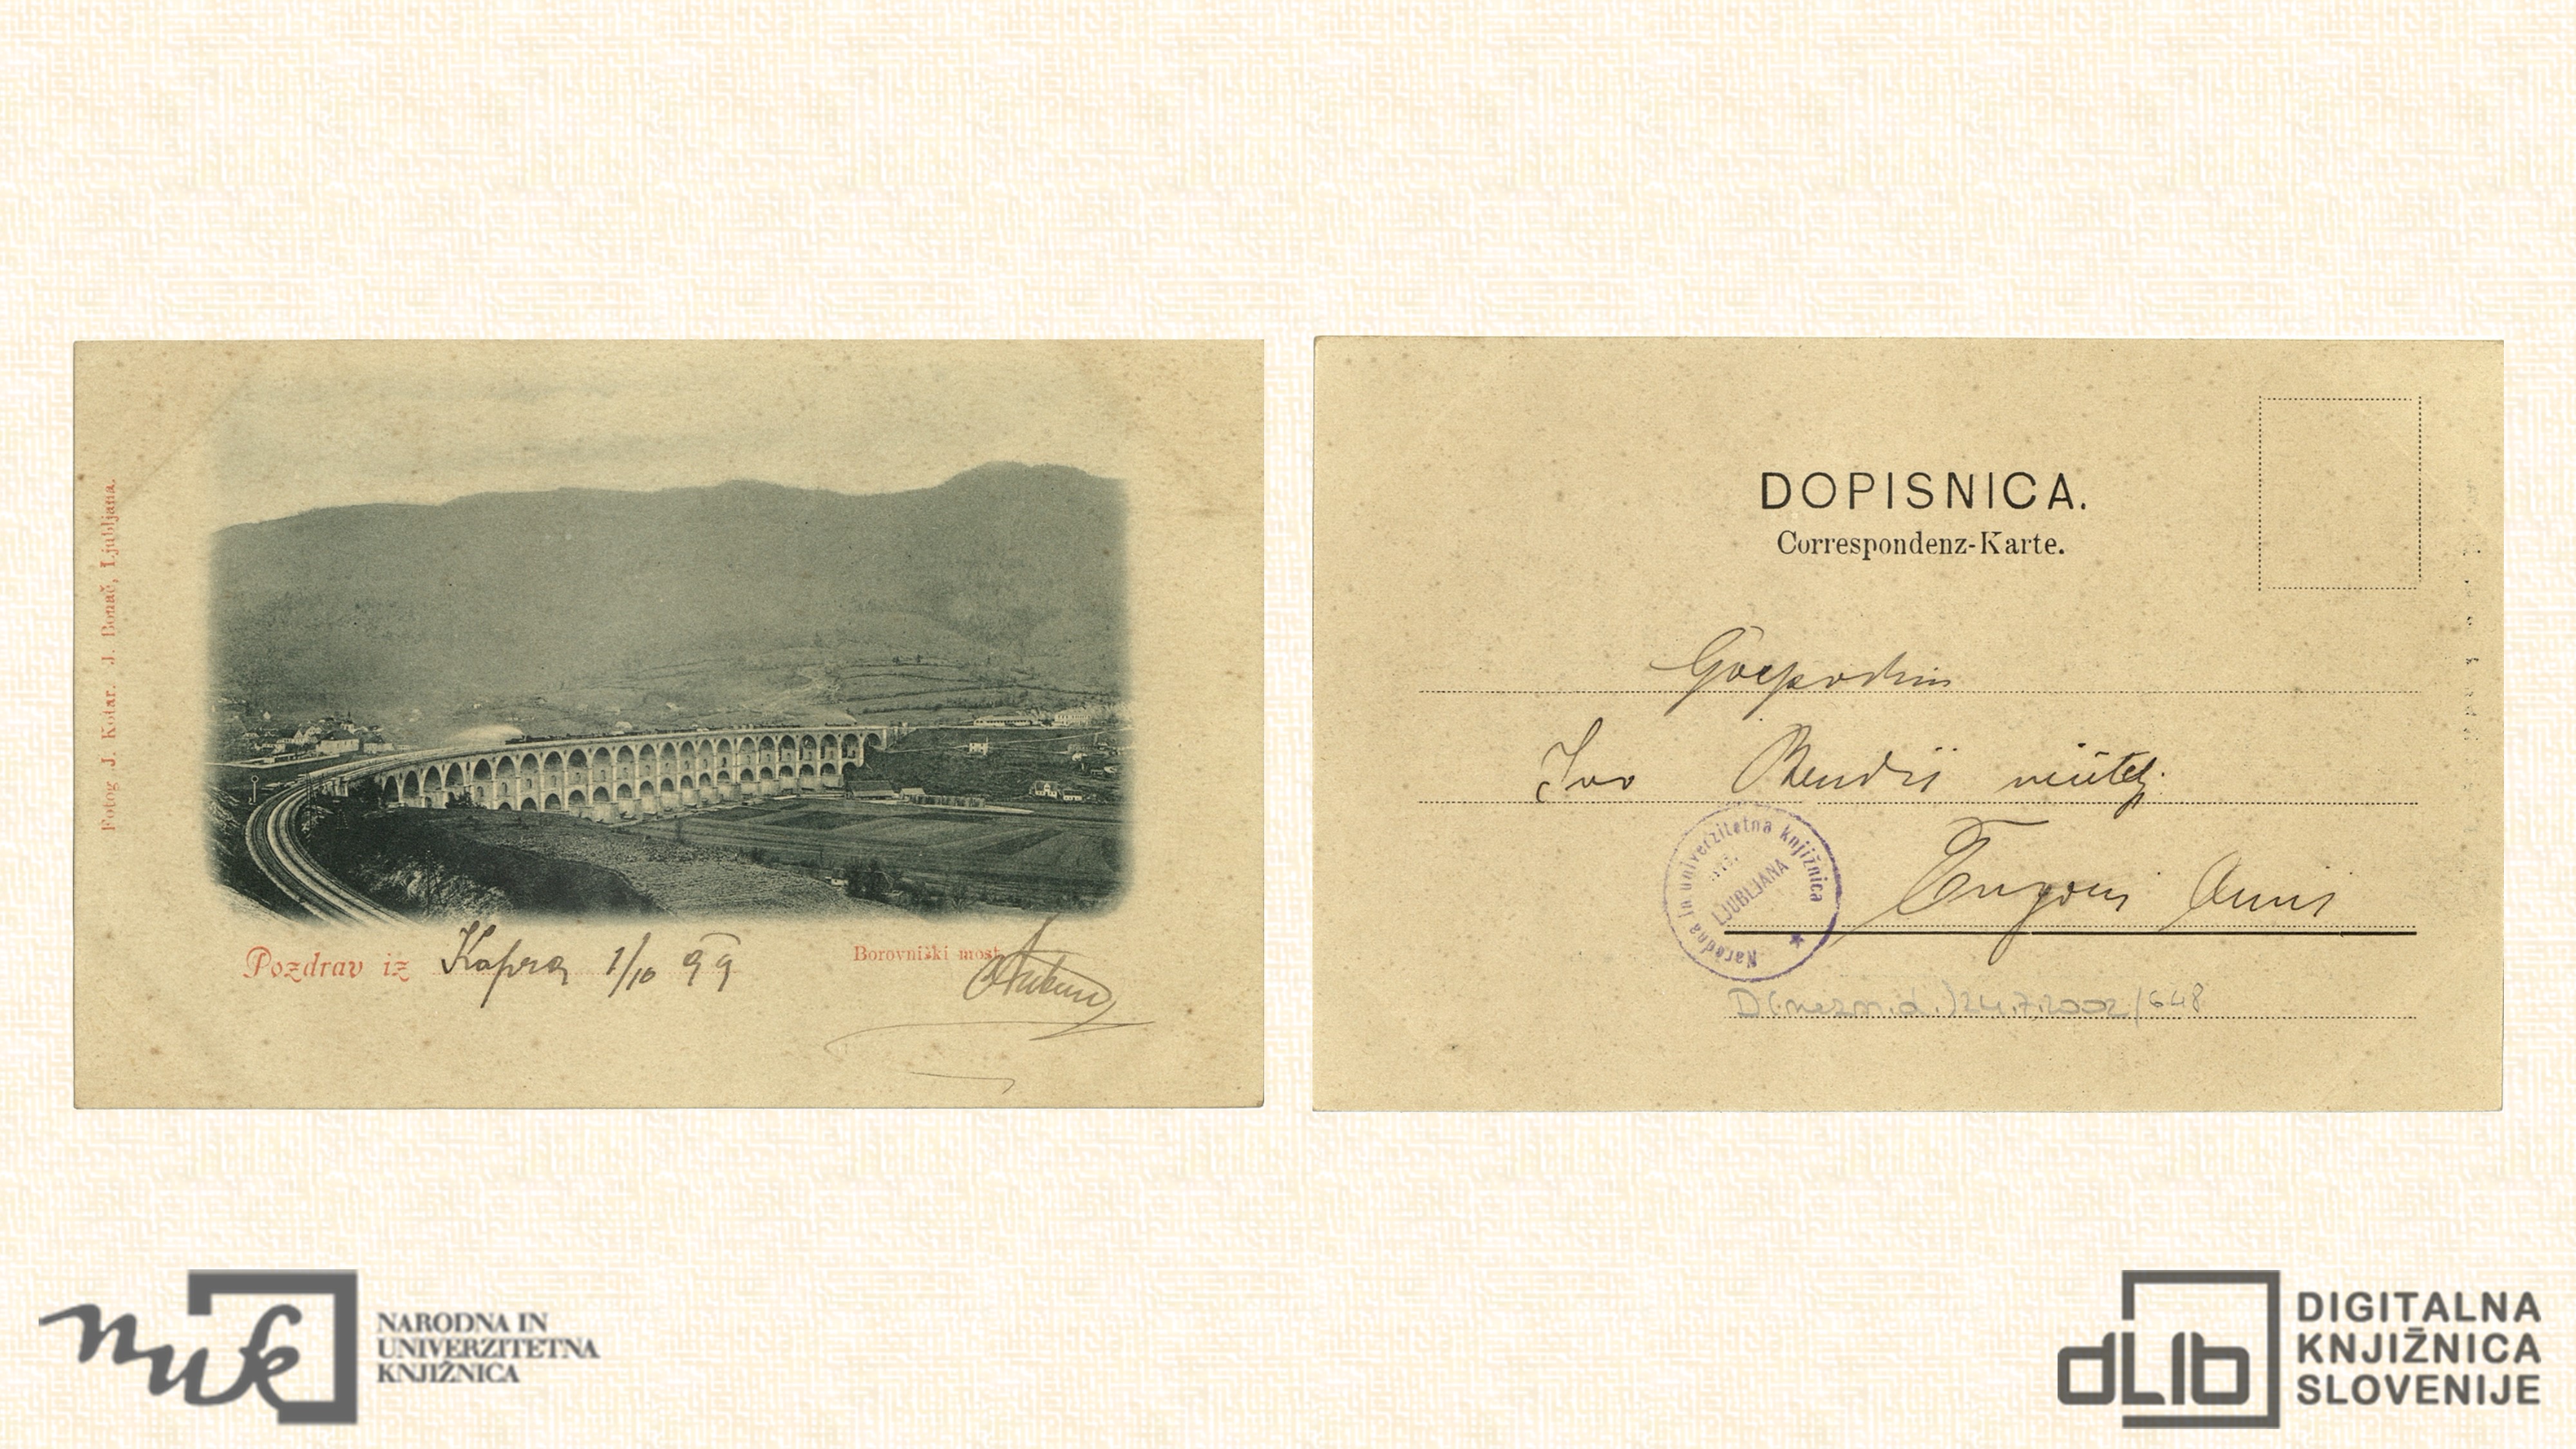 Fotog J. Kotar. J. Bonač, Ljubljana.
Pozdrav iz 1/10 99
Borovniški most
DOPISNICA.
Correspondenz-Karte.
Gospodin
Ivo
Narodna in univerzitetna knjižnica
LJUBLJANA
24.7.2002/648
NARODNA IN
UNIVERZITETNA
KNJIŽNICA
dLib
DIGITALNA
KNJIŽNICA
SLOVENIJE
nuk